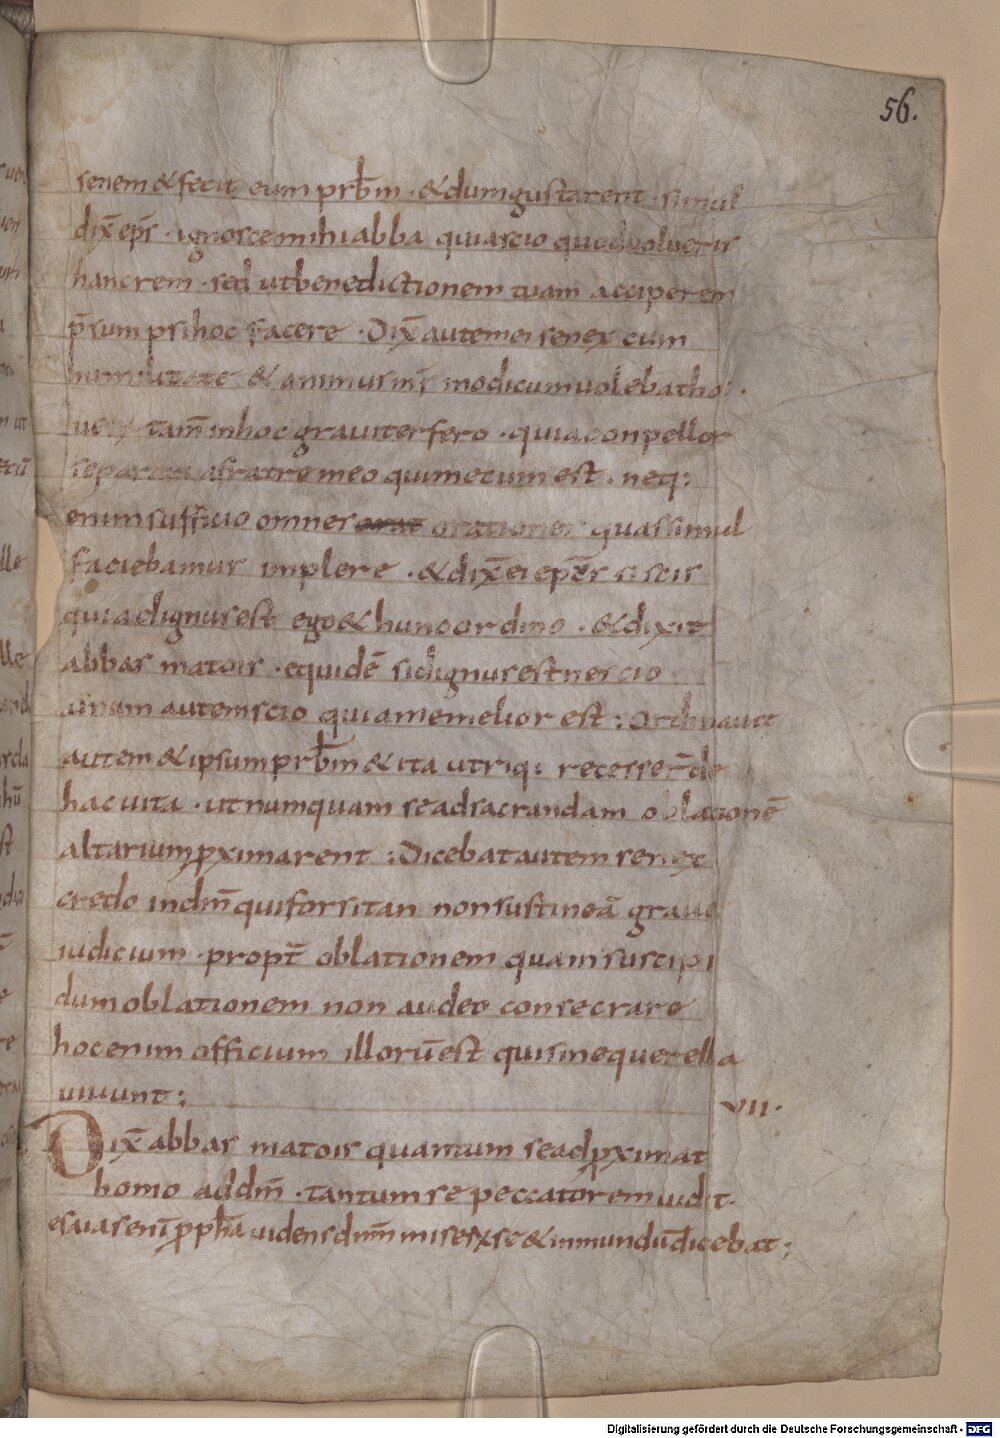 56.
senem & fecit eum prb̄m · & dum gustarent · simul
dix̄ ep̄s · ignosce mihi abba quia scio quod volueris
hanc rem · sed ut benedictionem tuam acciperem
p̄sumpsi hoc facere · Dix̄ autem ei senex cum
humilitate & animus m̄s modicum volebat ho ·
tam̄ in hoc graviter fero · quia conpellor
separari a fratre meo qui mecum est · neq:
enim sufficio omnes orat orationes quas simul
faciebamus implere · & dix̄ ei ep̄s si scis
quia dignus est ego & hunc ordino · & dixit
abbas matois · equidē si dignus est nescio
unum autem scio quia me melior est : Ordinavit
autem & ipsum prb̄m & ita utriq: recesser̄ de
hac vita · ut numquam se ad sacrandam oblationē
altarium pximarent : Dicebat autem senex
credo in dm̄ qui forsitan non sustineā grave
iudicium · propt̄ oblationem quam suscipi
dum oblationem non audeo consecrare
hoc enim officium illorū est qui sine querella
vivunt ;
VII·
Dix̄ abbas matois quantum se adpximat
homo ad dm̄ · tantum se peccatorem vidit·
esaias eni͞ pph̄a videns dnm̄ miserx se & inmundū dicebat ;
Digitalisierung gefördert durch die Deutsche Forschungsgemeinschaft - DFG